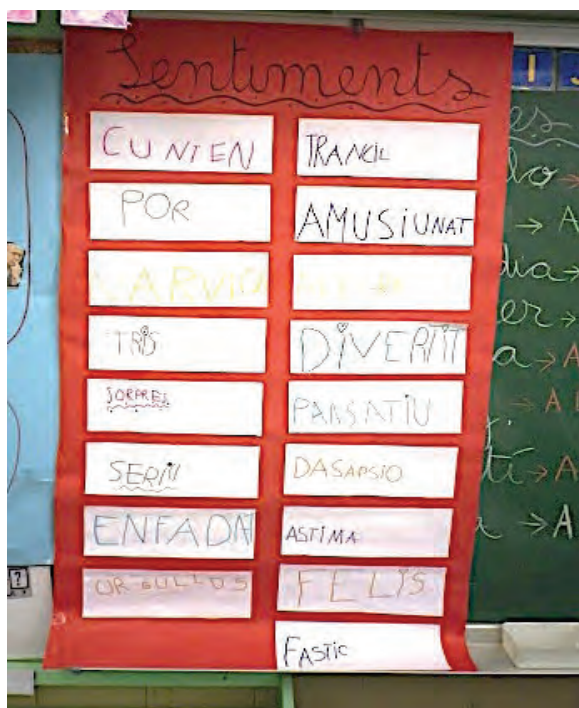 Sentiments
CUNTEN
POR
TRIS
SORPRES
SERIU
ENFADAT
URGULLOS
TRANCIL
AMUSIUNAT
DIVERTIT
PANSATIU
DASAPSIO
ASTIMA
FELIS
FASTIC
I